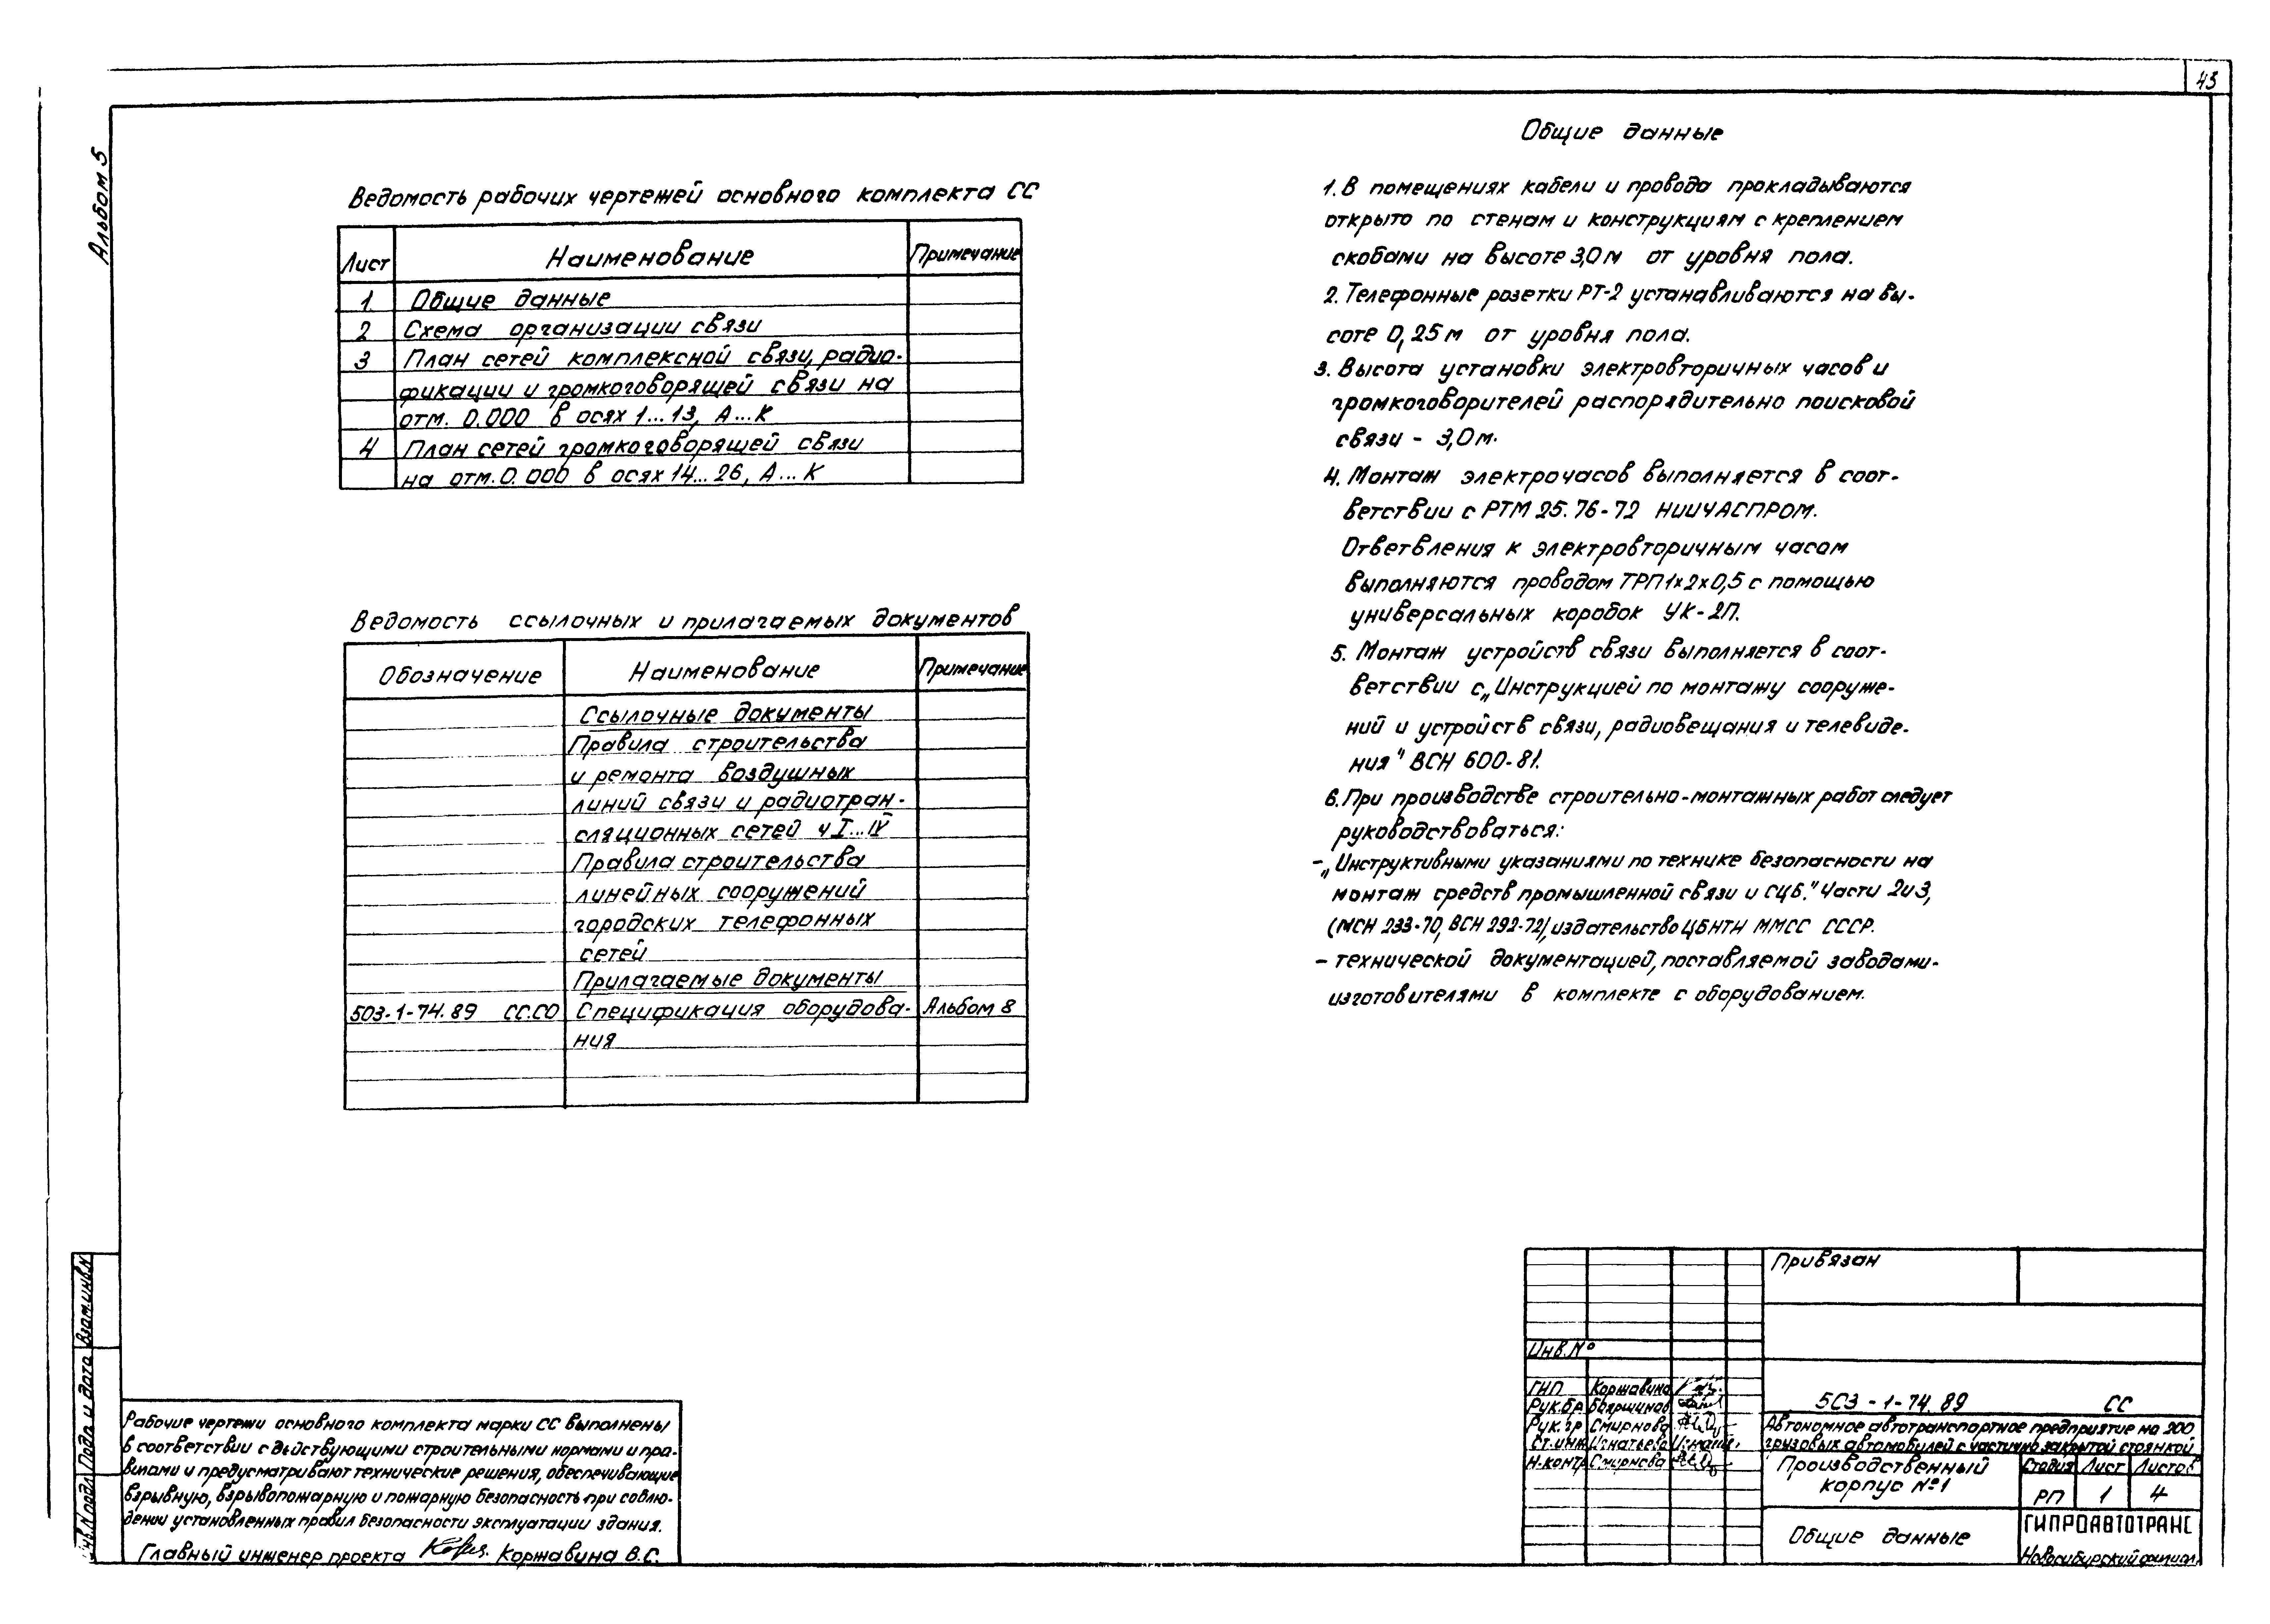 43
Альбом 5
Ведомость рабочих чертежей основного комплекта СС
Лист Наименование Примечание
1 Общие данные
2 Схема организации связи
3 План сетей комплексной связи, радио-
фикации и громкоговорящей связи на
отм. 0.000 в осях 1...13, А...К
4 План сетей громкоговорящей связи
на отм. 0.000 в осях 14...26, А...К
Ведомость ссылочных и прилагаемых документов
Обозначение Наименование Примечание
Ссылочные документы
Правила строительства
и ремонта воздушных
линий связи и радиотран-
сляционных сетей ч I...IV
Правила строительства
линейных сооружений
городских телефонных
сетей
Прилагаемые документы
503-1-74.89 СС.СО Спецификация оборудова- Альбом 8
ния
Общие данные
1. В помещениях кабели и провода прокладываются
открыто по стенам и конструкциям с креплением
скобами на высоте 3,0м от уровня пола.
2. Телефонные розетки РТ-2 устанавливаются на вы-
соте 0,25м от уровня пола.
3. Высота установки электровторичных часов и
громкоговорителей распорядительно поисковой
связи - 3,0м.
4. Монтаж электрочасов выполняется в соот-
ветствии с РТМ 25.76-72 НИИЧАСПРОМ.
Ответвления к электровторичным часам
выполняются проводом ТРП 1х2х0,5 с помощью
универсальных коробок УК-2П.
5. Монтаж устройств связи выполняется в соот-
ветствии с „Инструкцией по монтажу сооруже-
ний и устройств связи, радиовещания и телевиде-
ния" ВСН 600-81.
6. При производстве строительно-монтажных работ следует
руководствоваться:
- „Инструктивными указаниями по технике безопасности на
монтаж средств промышленной связи и СЦБ." Части 2 и 3,
(МСН 233-70, ВСН 292-72), издательство ЦБНТИ ММСС СССР.
- технической документацией, поставляемой заводами-
изготовителями в комплекте с оборудованием.
Инв.N подл. Подп. и дата Взам.инв.N
Рабочие чертежи основного комплекта марки СС выполнены
в соответствии с действующими строительными нормами и пра-
вилами и предусматривают технические решения, обеспечивающие
взрывную, взрывопожарную и пожарную безопасность при соблю-
дении установленных правил безопасности эксплуатации здания.
Главный инженер проекта Коржавина В.С.
Привязан
Инв.№
ГИП Коржавина
Рук.бр.
Рук.гр. Смирнова
Ст.инж. Игнатьева
Н.контр. Смирнова
503-1-74.89 СС
Автономное автотранспортное предприятие на 200
грузовых автомобилей с частично закрытой стоянкой
Производственный
корпус №1
Стадия Лист Листов
РП 1 4
Общие данные
ГИПРОАВТОТРАНС
Новосибирский филиал